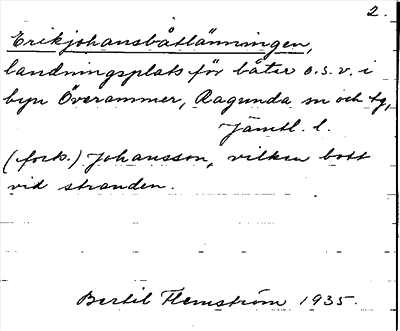 2.
Erikjohansbåtlänningen,
landningsplats för båtar o.s.v. i
byn Överammer, Ragunda sn och tg,
Jämtl. l.
(fork.) Johansson, vilken bott
vid stranden.
Bertil Flemström 1935.